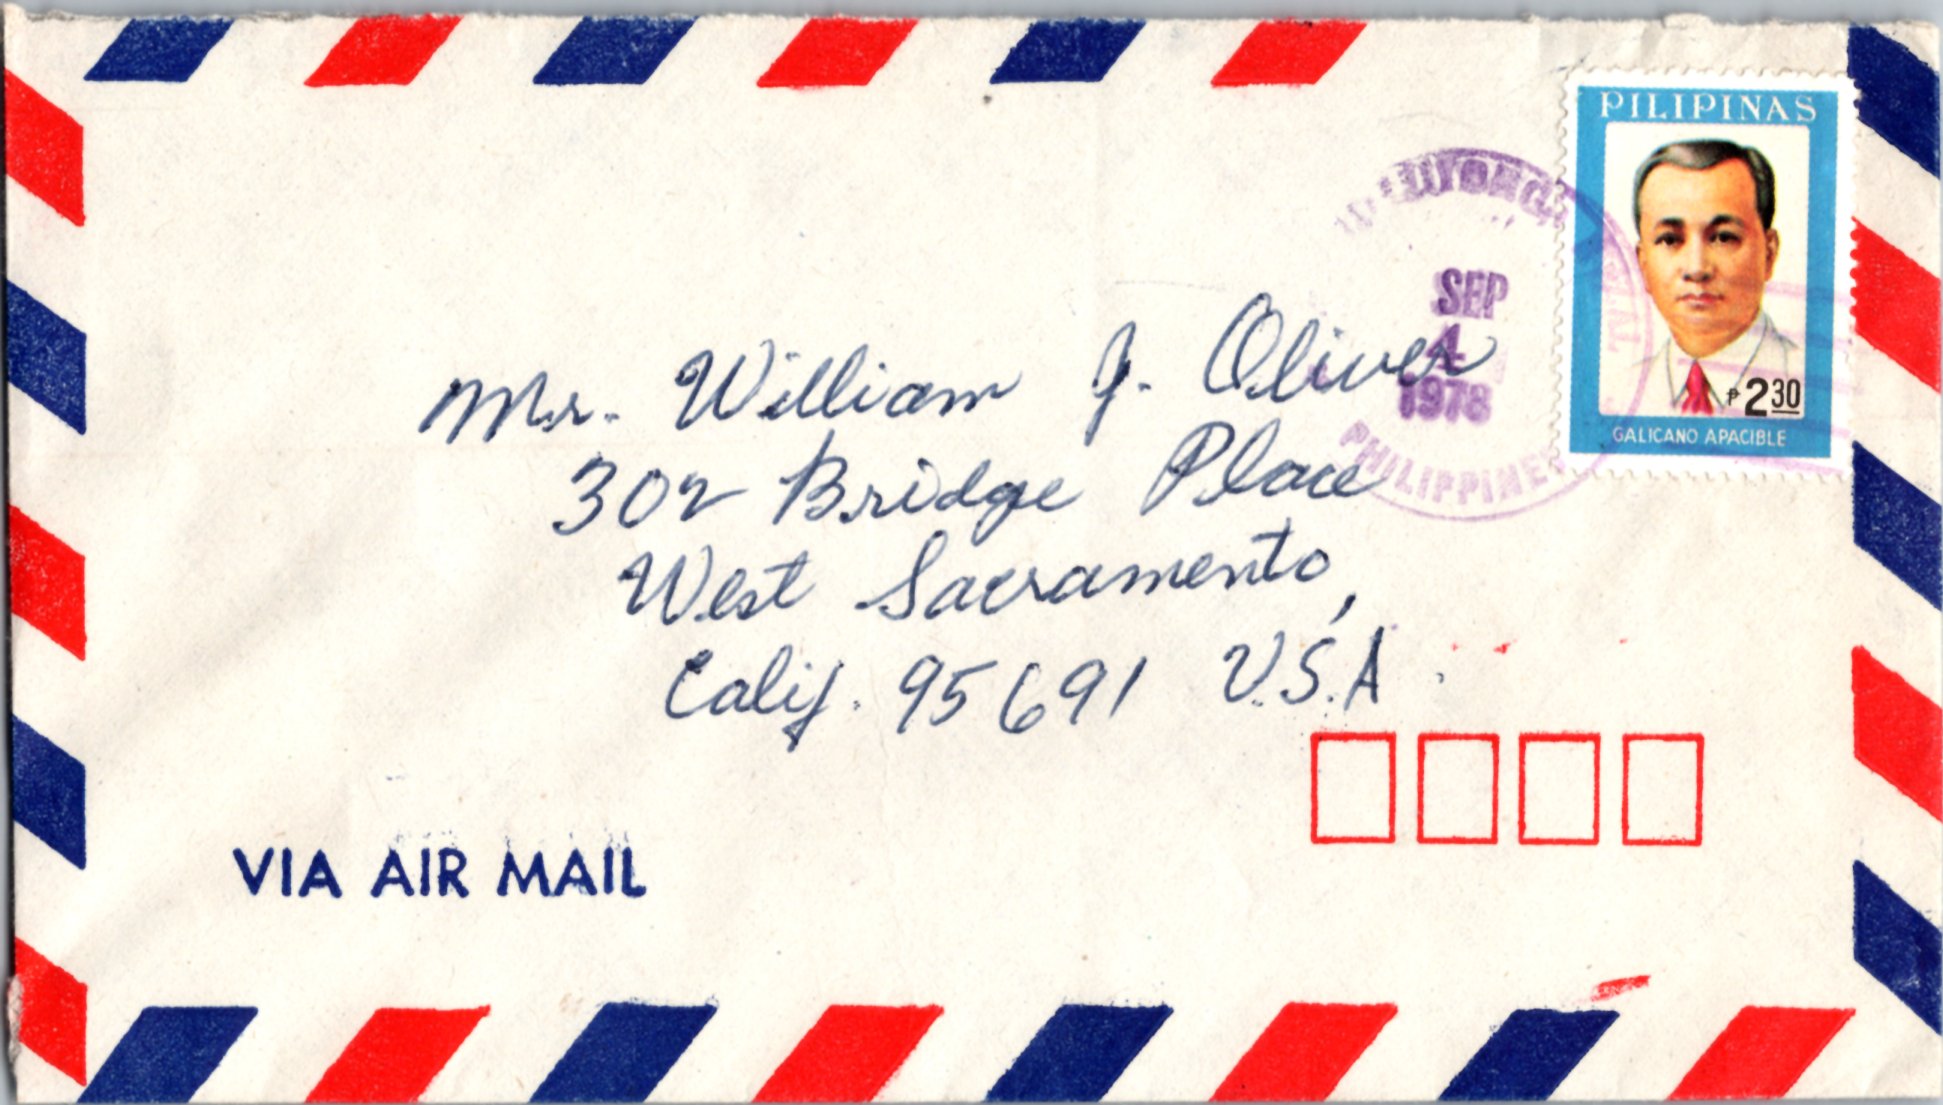 PILIPINAS
SEP
4
1978
PHILIPPINES
₱2.30
GALICANO APACIBLE
Mr. William J. Oliver
302 Bridge Place
West Sacramento,
Calif. 95691 U.S.A.
VIA AIR MAIL